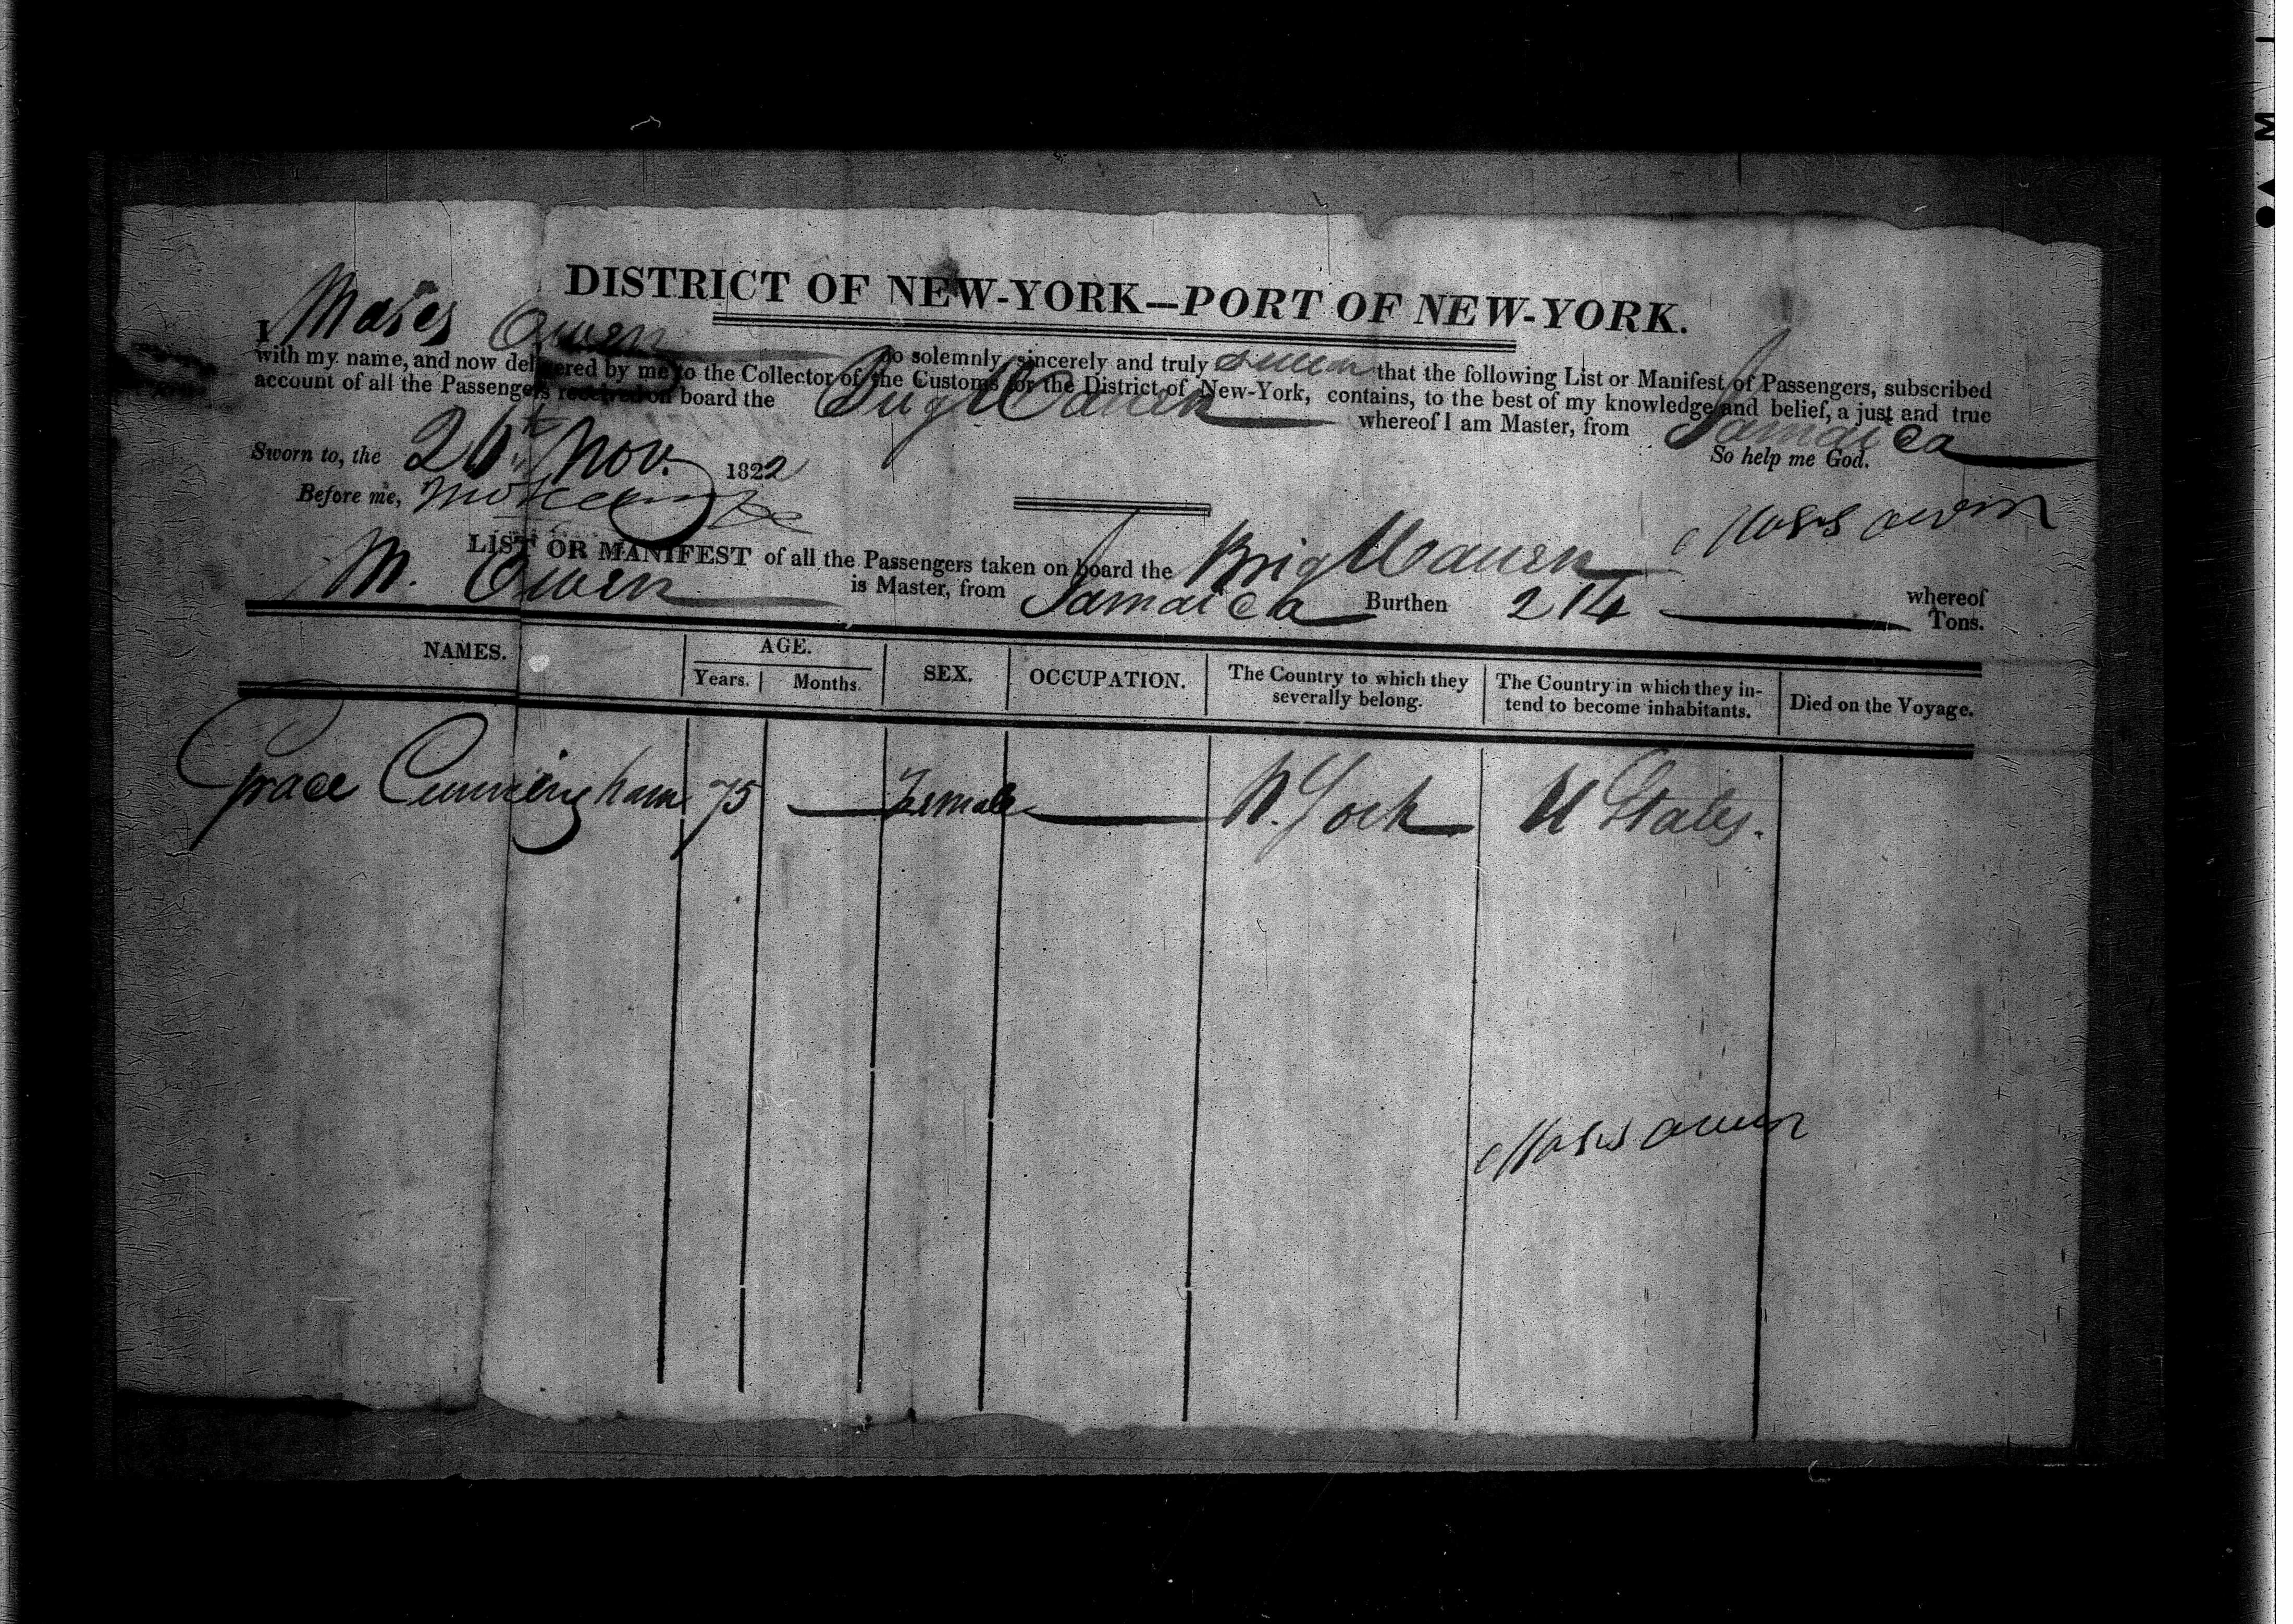 DISTRICT OF NEW-YORK—PORT OF NEW-YORK.
I Moses Owen do solemnly, sincerely and truly swear that the following List or Manifest of Passengers, subscribed
with my name, and now delivered by me to the Collector of the Customs for the District of New-York, contains, to the best of my knowledge and belief, a just and true
account of all the Passengers received on board the Brig whereof I am Master, from Jamaica
So help me God.
Sworn to, the 26th Nov. 1822
Before me,
Moses Owen
LIST OR MANIFEST of all the Passengers taken on board the Brig whereof
M. Owen is Master, from Jamaica Burthen 214 Tons.
NAMES. AGE. SEX. OCCUPATION. The Country to which they severally belong. The Country in which they in-tend to become inhabitants. Died on the Voyage.
Years. Months.
Grace Cunningham 75 — Female — N. York U States.
Moses Owen